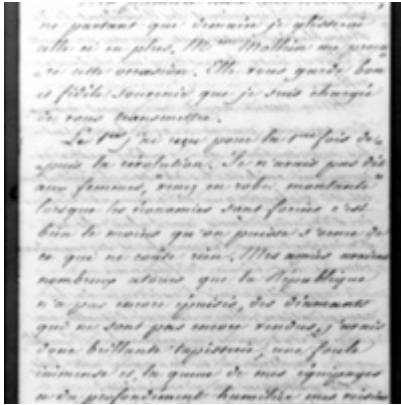 ne partant que demain je glisserai
celle ci en plus. Mme Mathieu me
de cette occasion. Elle vous garde bon
et fidèle souvenir que je suis chargée
de vous transmettre.
Le 1er j'ai reçu pour la 1ère fois de-
puis la révolution. Je n'avais pas dit
aux femmes, "venez en robes montantes"
lorsque les économies sont forcées c'est
bien le moins qu'on puisse de
ce qui ne coûte rien. Mes amies
nombreux atours que la République
n'a pas encore épuisés, des diamants
qui ne sont pas encore vendus, j'avais
donc brillante tapisserie, une foule
immense et la queue de mes équipages
a du profondément humilier mes voisins